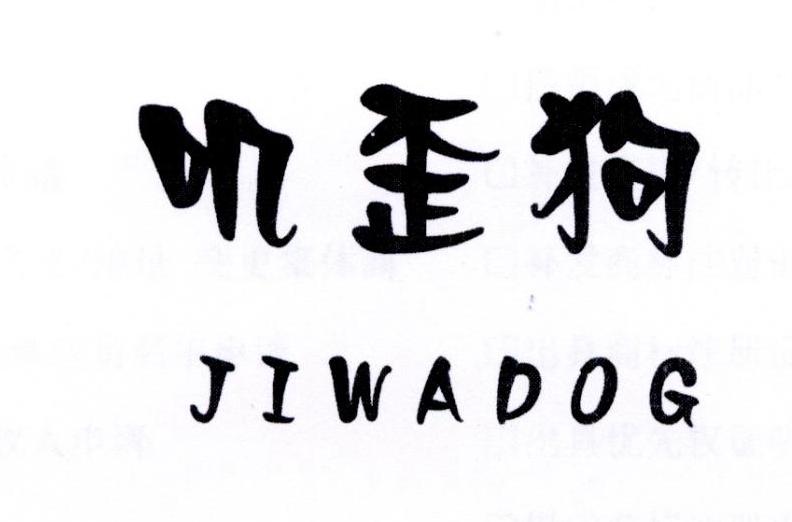 叽歪狗
JIWADOG